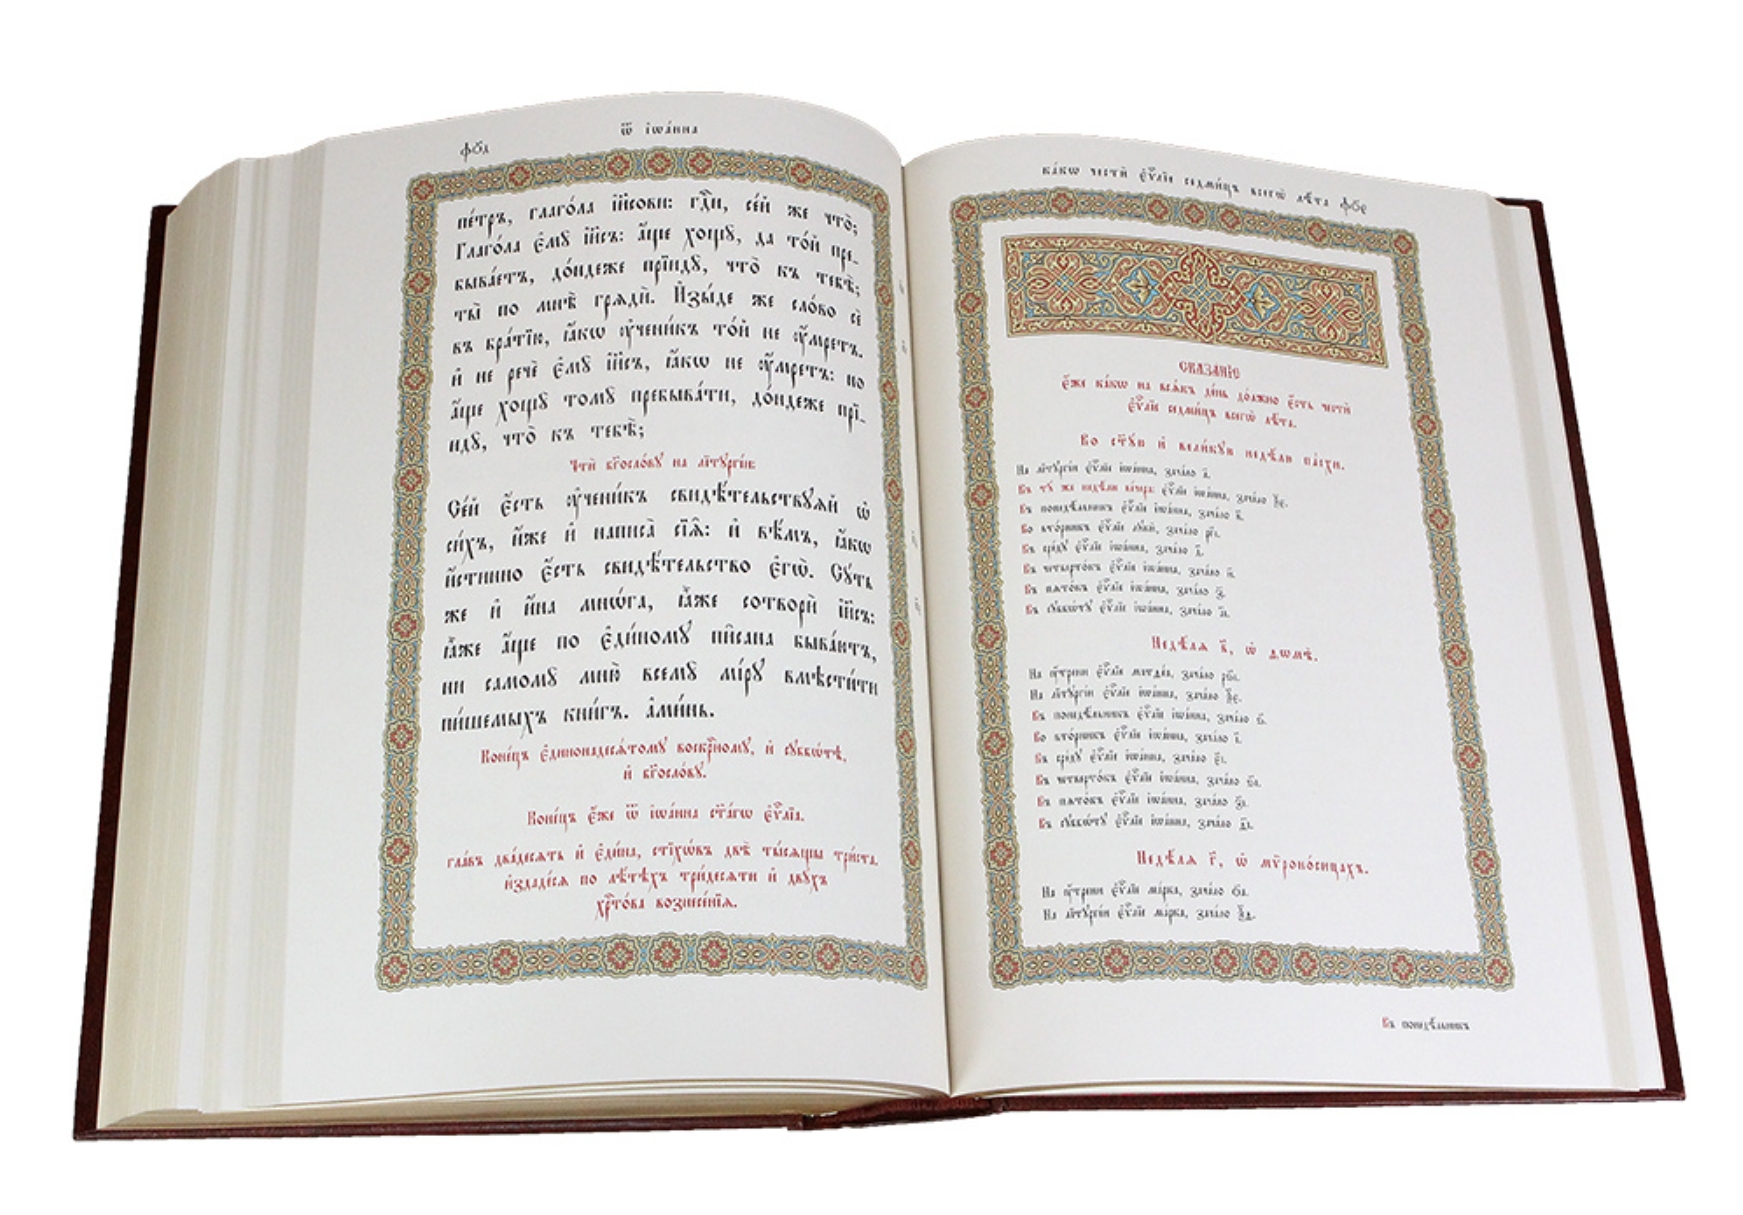 ѿ і҆ѡа́нна
фч҃д
пе́тръ, глаго́ла і҆и҃сови: гдⷭ҇и, се́й же что̀;
Глаго́ла є҆мꙋ̀ і҆и҃съ: а҆́ще хощꙋ̀, да то́й пре-
быва́етъ, до́ндеже прїидꙋ̀, что̀ къ тебѣ̀;
ты̀ по мнѣ̀ грядѝ. И҆зы́де же сло́во сѐ
въ бра́тїю, ꙗ҆́кѡ ᲂу҆чени́къ то́й не ᲂу҆́мретъ.
и҆ не речѐ є҆мꙋ̀ і҆и҃съ, ꙗ҆́кѡ не ᲂу҆́мретъ: но
а҆́ще хощꙋ̀ томꙋ̀ пребыва́ти, до́ндеже прїи-
идꙋ̀, что̀ къ тебѣ̀;
Чтѝ бг҃осло́вꙋ на лїтꙋргі́и:
Се́й є҆́сть ᲂу҆чени́къ свидѣ́тельствꙋѧй ѡ҆
си́хъ, и҆́же и҆ написа̀ сїѧ̑: и҆ вѣ́мъ, ꙗ҆́кѡ
и҆́стинно є҆́сть свидѣ́тельство є҆гѡ̀. Сꙋ́ть
же и҆ и҆́на мнѡ́га, ꙗ҆̀же сотворѝ і҆и҃съ:
ꙗ҆̀же а҆́ще по є҆ди́номꙋ пи̑сана быва́ютъ,
ни самомꙋ̀ мню̀ всемꙋ̀ мі́рꙋ вмѣсти́ти
пи́шемыхъ кни́гъ. а҆ми́нь.
Коне́цъ є҆диннонадеся́томꙋ воскрⷭ҇номꙋ, и҆ сꙋббѡ́тѣ,
и҆ бг҃осло́вꙋ.
Коне́цъ є҆́же ѿ і҆ѡа́нна ст҃а́гѡ є҆ѵⷢ҇лїа.
гла́въ два́десять и҆ є҆ди́на, сті̑хѡвъ двѣ̀ ты́сящы три́ста.
и҆здаде́ся по лѣ́тѣхъ три́десяти и҆ двꙋ́хъ
хрⷭ҇то́ва вознесе́нїѧ.
ка́кѡ честѝ є҆ѵⷢ҇лїе седми́цъ всегѡ̀ лѣ́та фч҃є
СКАЗА́НІЕ
є҆́же ка́кѡ на всѧ́къ де́нь до́лжно є҆́сть честѝ
є҆ѵⷢ҇лїе седми́цъ всегѡ̀ лѣ́та.
Во ст҃ꙋ́ю и҆ вели́кꙋю недѣ́лю па́схи.
На лїтꙋргі́и є҆ѵⷢ҇лїе і҆ѡа́нна, зача́ло а҃.
Въ тꙋ́ же недѣ́лю ве́чера: є҆ѵⷢ҇лїе і҆ѡа́нна, зача́ло ѯ҃є.
Въ понедѣ́льникъ є҆ѵⷢ҇лїе і҆ѡа́нна, зача́ло в҃.
Во вто́рникъ є҆ѵⷢ҇лїе лꙋкѝ, зача́ло рг҃і.
Въ сре́дꙋ є҆ѵⷢ҇лїе і҆ѡа́нна, зача́ло д҃.
Въ четверто́къ є҆ѵⷢ҇лїе і҆ѡа́нна, зача́ло и҃.
Въ пято́къ є҆ѵⷢ҇лїе і҆ѡа́нна, зача́ло з҃.
Въ сꙋббѡ́тꙋ є҆ѵⷢ҇лїе і҆ѡа́нна, зача́ло а҃і.
Недѣ́ля в҃, ѡ҆ ѳѡмѣ̀.
На ᲂу҆́трени є҆ѵⷢ҇лїе матѳе́а, зача́ло рѕ҃і.
На лїтꙋргі́и є҆ѵⷢ҇лїе і҆ѡа́нна, зача́ло ѯ҃є.
Въ понедѣ́льникъ є҆ѵⷢ҇лїе і҆ѡа́нна, зача́ло ѕ҃.
Во вто́рникъ є҆ѵⷢ҇лїе і҆ѡа́нна, зача́ло і҃.
Въ сре́дꙋ є҆ѵⷢ҇лїе і҆ѡа́нна, зача́ло є҃і.
Въ четверто́къ є҆ѵⷢ҇лїе і҆ѡа́нна, зача́ло ѕ҃і.
Въ пято́къ є҆ѵⷢ҇лїе і҆ѡа́нна, зача́ло з҃і.
Въ сꙋббѡ́тꙋ є҆ѵⷢ҇лїе і҆ѡа́нна, зача́ло д҃і.
Недѣ́ля г҃, ѡ҆ мѷроно́сицахъ.
На ᲂу҆́трени є҆ѵⷢ҇лїе ма́рка, зача́ло о҃а.
На лїтꙋргі́и є҆ѵⷢ҇лїе ма́рка, зача́ло ѯ҃ѳ.
Въ понедѣ́льникъ